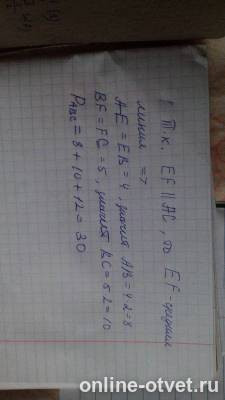 1. Т.к. EF || AC, то EF-средняя
линия =>
AE = EB = 4, значит AB = 4·2 = 8
BF = FC = 5, значит BC = 5·2 = 10
P_ABC = 8 + 10 + 12 = 30
online-otvet.ru